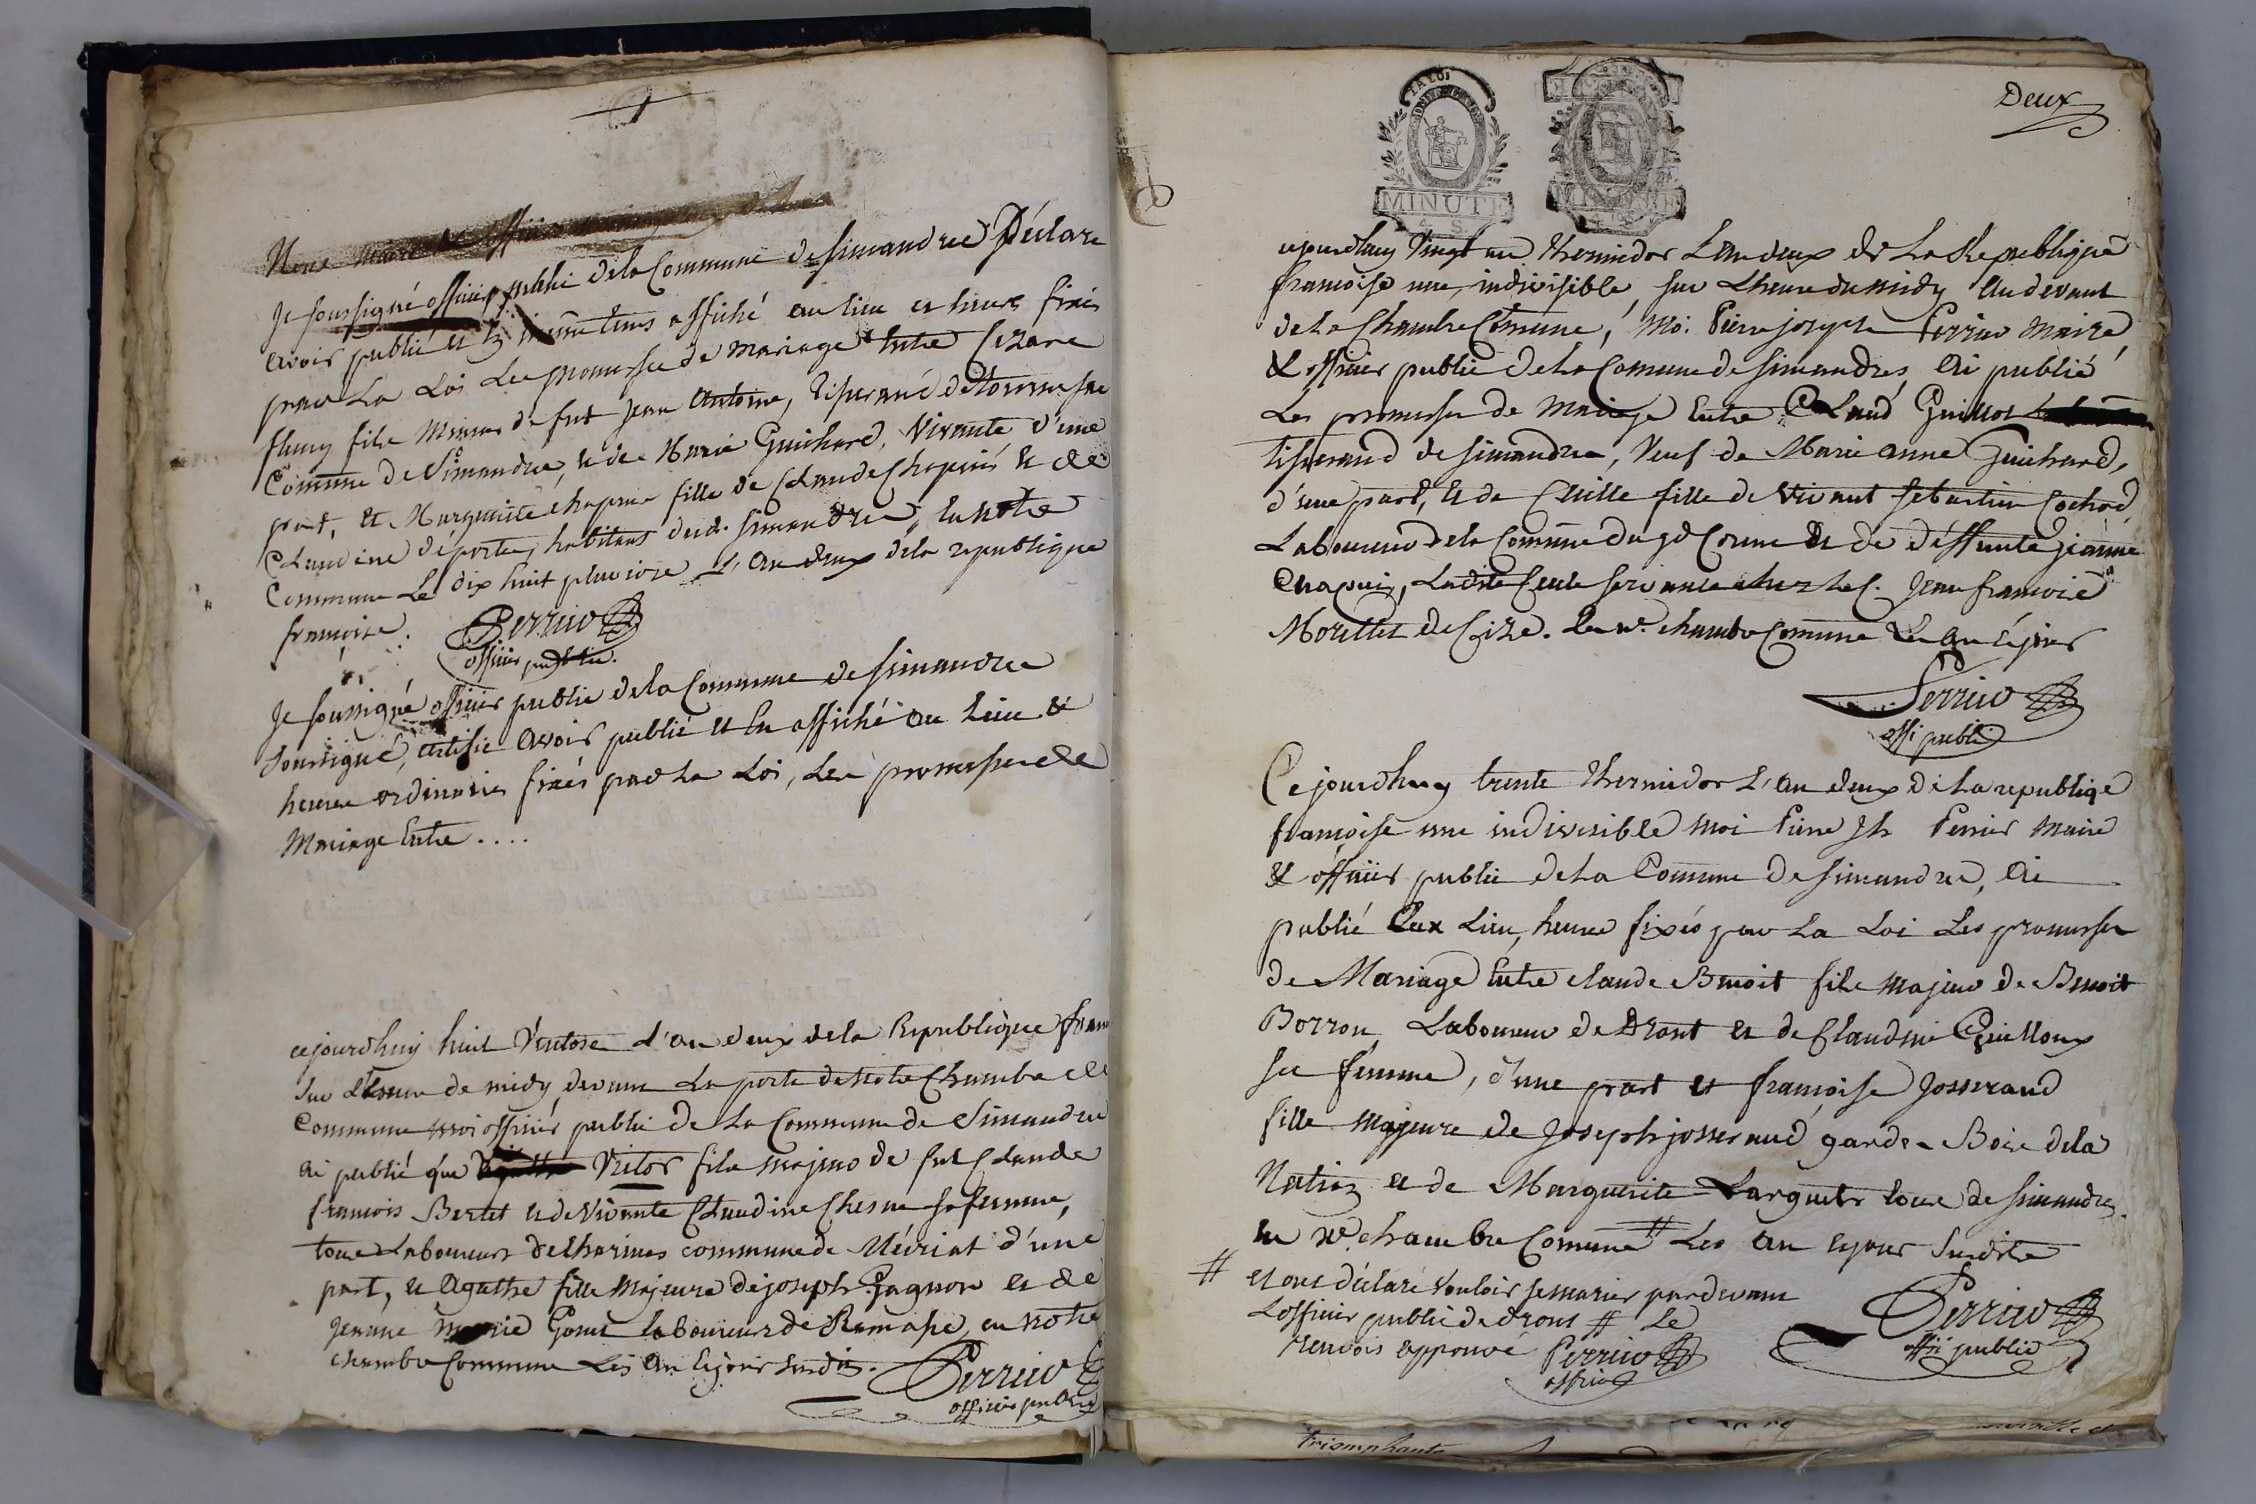 Je soussigné officier public de la Commune de simandre Déclare
avoir publié et en même tems affiché au lieu et heure fixés
par La Loi Les promesses de mariage Entre Cezare
fleury fils Mineur de fut Jean Antoine, Tisserand de
Commune de Simandre, et de Marie Guichard, Vivante d'une
part, et Marguerite chapuis fille de Claude Chapuis et de
Claudine déporte, habitans dud. simandre, En notre
Commune Le dix huit pluviose L'An deux de la republique
françoise. Perrier
officier public.
Je soussigné officier public de la Commune de simandre
soussigné, certifie avoir publié et En affiché au Lieu &
heures ordinaires fixés par La Loi, Les promesses de
Mariage Entre ....
cejourdhuy huit Ventose l'an deux de la Republique
sur L'heure de midy, devant La porte de notre Chambre
Commune moi officier public de La Commune de Simandre
ai publié que Victor fils majeur de fut Claude
francois Bertet et de Vivante Claudine Chesne sa femme,
tous Laboureurs de commune de Mériat d'une
part, et Agathe fille Majeure de joseph Gagnon et de
Jeanne Marie laboureurs de Ramasse, en notre
chambre Commune Les an et jour susdits. Perrier
officier public
Deux
MINUTE
MINUTE
cejourdhuy Vingt un thermidor L'an deux de La Republique
françoise une, indivisible, sur L'heure du midy Au devant
de La Chambre Comune, Moi Pierre joseph Perrier Maire
& officier public de La Comune de simandres, Ai publié
Les promesses de Mariage Entre Claud Guillot
tisserand de simandre, Veuf de Marie anne Guichard,
d'une part, et de Cecille fille de vivant sebastien Cochod,
Laboureur de la Comune du gd Corent et de deffunte jeanne
Chapuis, Ladite Cecile servante chez Le C. Jean francois
Morellet de Cize. En ne. chambre Comune Les an et jour
Perrier
offi public
Cejourdhuy trente thermidor L'an deux de La republiqe
françoise une indivisible moi Pierre Jh Perrier Maire
& officier public de La Commune de simandre, Ai
publié Aux Lieu, heure fixés par La Loi Les promesses
de Mariage Entre claude Benoit fils majeur de Benoit
Borron, Laboureur de Dront et de Claudine Guilloux
sa femme, d'une part et françoise Josserand
fille majeure de Joseph josserand garde-Bois de la
Nation et de Marguerite Larguet tous de simandre.
en ne. chambre Comune # Les an et jour susdits
# et ont déclaré Vouloir se marier pardevant
L'officier public de dront # Le
renvois approuvé Perrier
officier
Perrier
offi public
triomphante